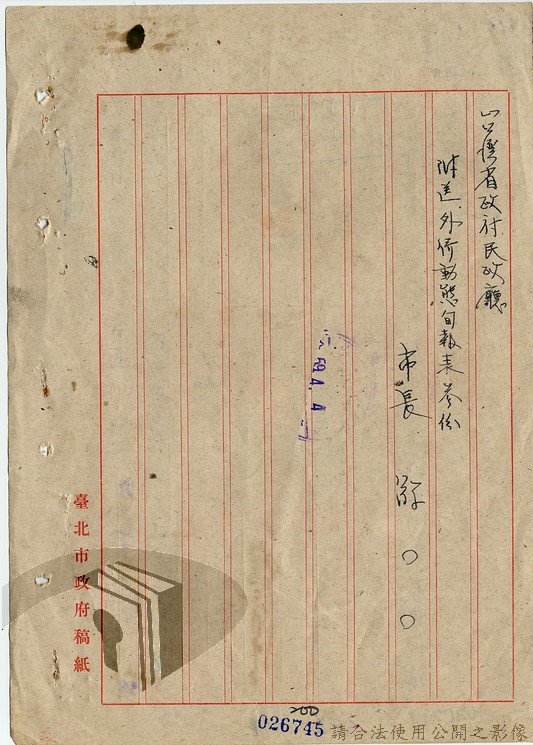 台灣省政府民政廳
附送外僑動態旬報表叁份
市長 游○○
臺北市政府稿紙
026745
請合法使用公開之影像